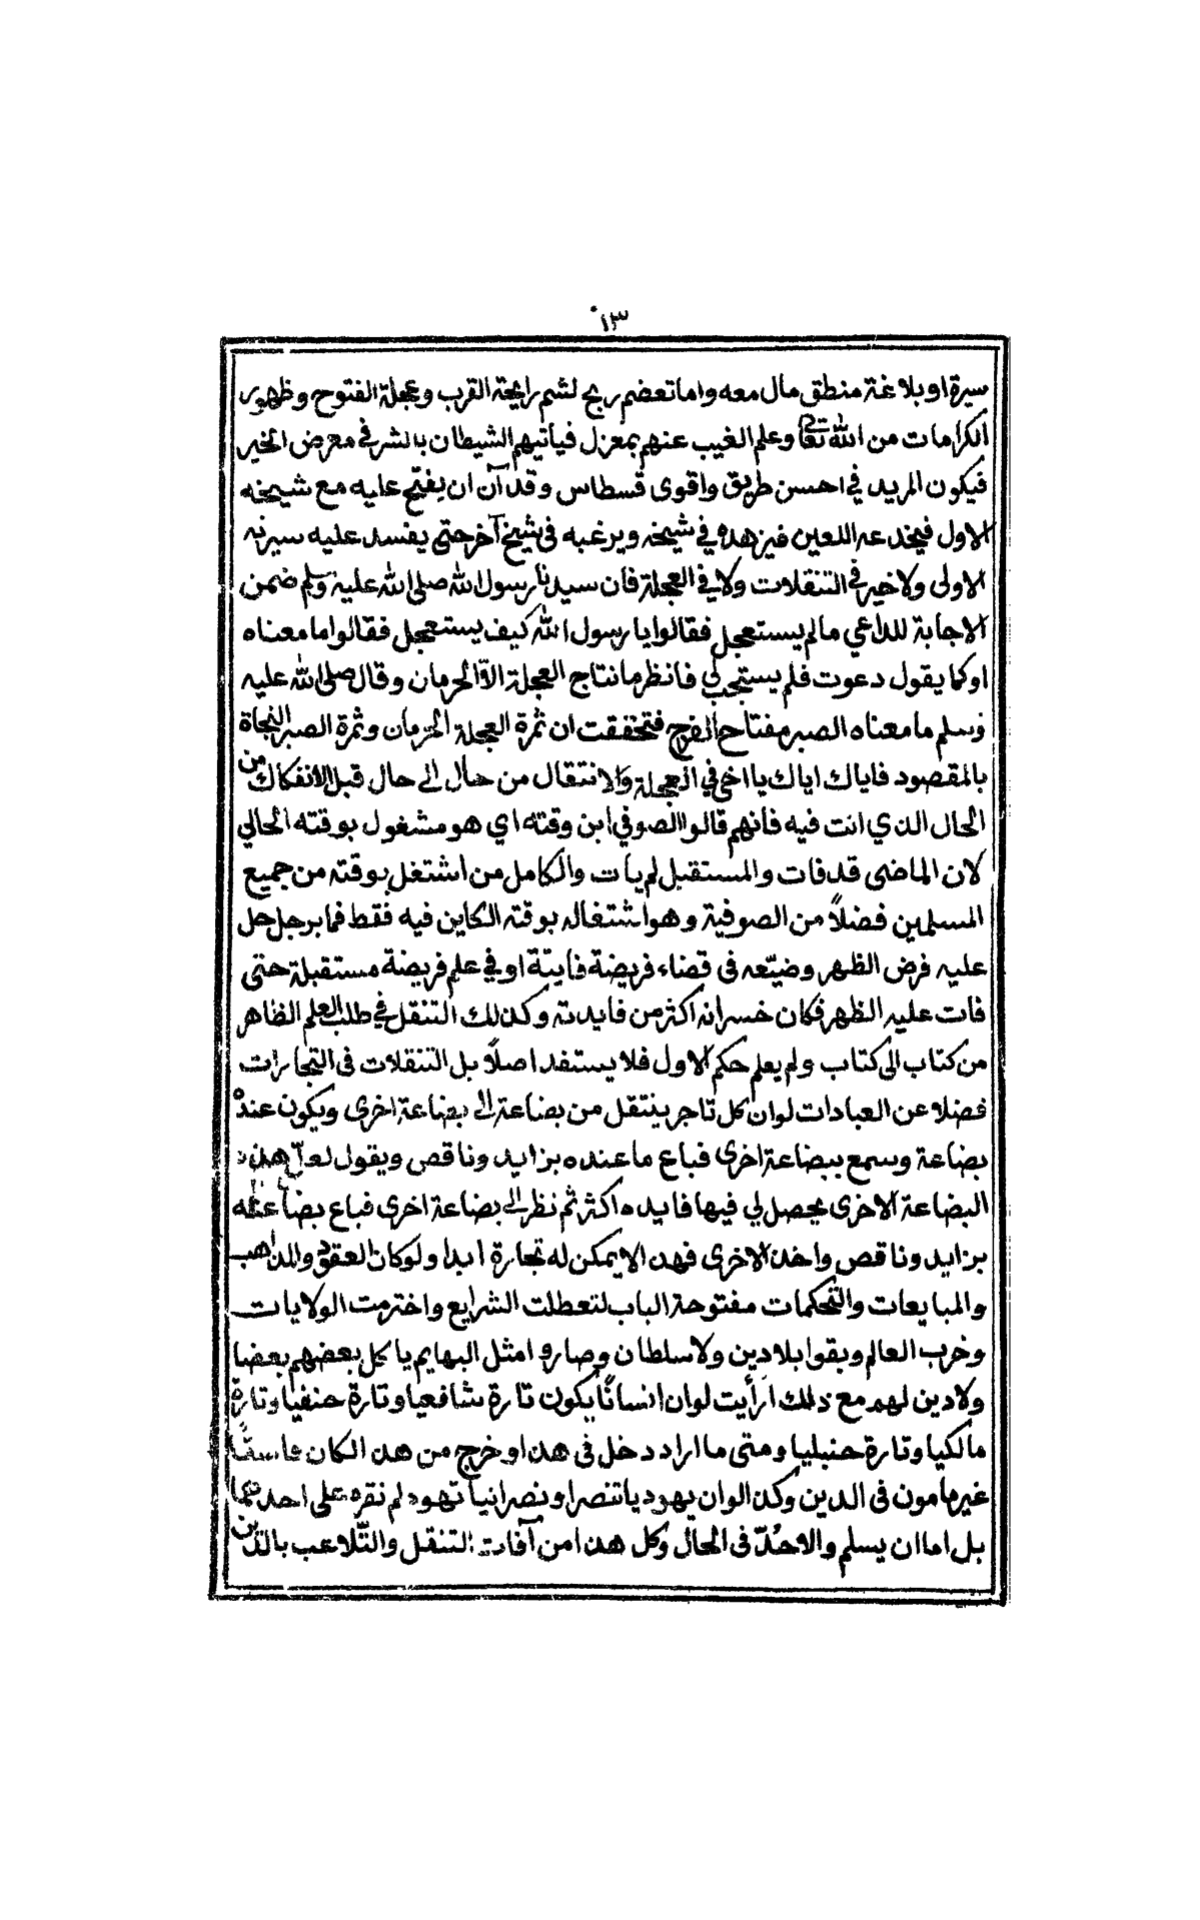 ١٣٠
سيرة او بلاغة منطق مال معه واما تعضهم ريح لشم رايحة القرب وعجلة الفتوح وظهور
الكرامات من الله تعالى وعلم الغيب عنهم بمعزل فياتيهم الشيطان بالشر في معرض الخير
فيكون المريد في احسن طريق واقوى قسطاس وقد آن ان يفتح عليه مع شيخه
الاول فيخدعه اللعين فيزهده في شيخه ويرغبه في شيخ آخر حتى يفسد عليه سيرته
الاولى ولا خير في التنقلات ولا في العجلة فان سيدنا رسول الله صلى الله عليه وسلم ضمن
الاجابة للداعي ما لم يستعجل فقالوا يا رسول الله كيف يستعجل فقالوا ما معناه
او كما يقول دعوت فلم يستجب لي فانظر ما نتاج العجلة الا الحرمان وقال صلى الله عليه
وسلم ما معناه الصبر مفتاح الفرج فتحققت ان ثمرة العجلة الحرمان وثمرة الصبر النجاة
بالمقصود فاياك اياك يا اخي في العجلة والانتقال من حال الى حال قبل الانفكاك من
الحال الذي انت فيه فانهم قالوا الصوفي ابن وقته اي هو مشغول بوقته الحالي
لان الماضى قد فات والمستقبل لم يات والكامل من اشتغل بوقته من جميع
المسلمين فضلاً من الصوفية وهو اشتغاله بوقته الكاين فيه فقط فما برجل حل
عليه فرض الظهر وضيّعه فى قضاء فريضة فايتة او في علم فريضة مستقبلة حتى
فات عليه الظهر فكان خسرانه اكثر من فايدته وكذلك التنقل في طلب العلم الظاهر
من كتاب الى كتاب ولم يعلم حكم الاول فلا يستفد اصلاً بل التنقلات فى التجارات
فضلا عن العبادات لوان كل تاجر ينتقل من بضاعة الى بضاعة اخرى ويكون عنده
بضاعة وسمع ببضاعة اخرى فباع ما عنده بزايد وناقص ويقول لعلّ هذه
البضاعة الاخرى يحصل لي فيها فايده اكثر ثم نظر الى بضاعة اخرى فباع بضاعته
بزايد وناقص واخذ الاخرى فهذا لا يمكن له تجارة ابدا ولو كان العقود والمذاهب
والمبايعات والتحكمات مفتوحة الباب لتعطلت الشرايع واخترمت الولايات
وخرب العالم وبقوا بلا دين ولا سلطان وصاروا مثل البهايم ياكل بعضهم بعضا
ولا دين لهم مع ذلك ارأيت لوان انسانًا يكون تارة شافعيا وتارة حنفيا وتارة
مالكيا وتارة حنبليا ومتى ما اراد دخل فى هذا وخرج من هذا لكان فاسقًا
غير مامون فى الدين وكذا لوان يهوديا تنصر او نصرانيا تهود لم نقره على احدهما
بل اما ان يسلم والا حُدّ فى الحال وكل هذا من آفات التنقل والتّلاعب بالدّين